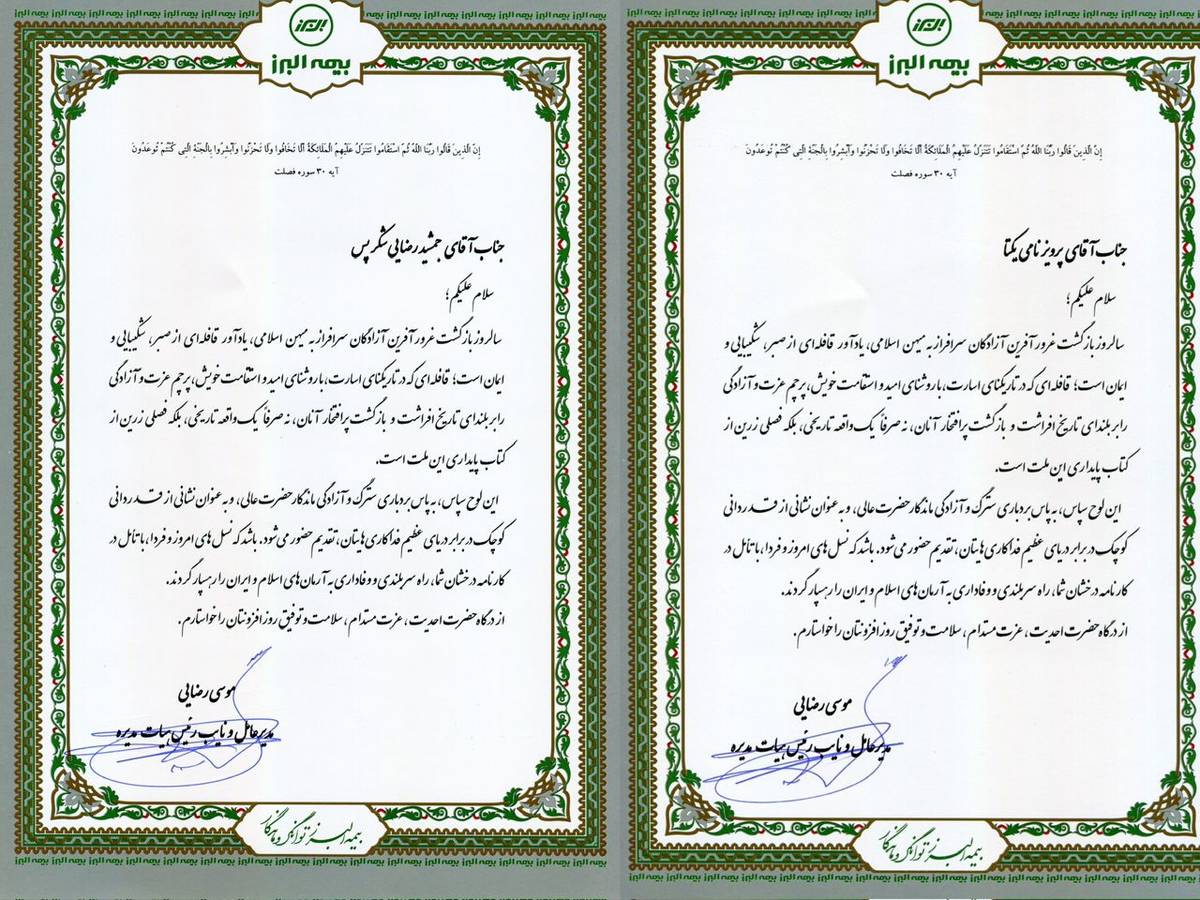 البرز
بیمه البرز
إنّ الّذینَ قالُوا ربّنا اللهُ ثُمّ استَقامُوا تَتَنَزّلُ عَلَیهِمُ المَلائِکةُ ألّا تَخافُوا ولَا تَحْزَنُوا وَأَبْشِرُوا بِالجَنّةِ الّتی کُنْتُمْ تُوعَدُونَ
آیه ۳۰ سوره فصلت
جناب آقای جمشید رضایی شکرپس
سلام علیکم؛
سالروز بازگشت غرورآفرین آزادگان سرافراز به میهن اسلامی، یادآور قافله‌ای از صبر، شکیبایی و
ایمان است؛ قافله‌ای که در تاریکنای اسارت، با روشنای امید و استقامت خویش، پرچم عزت و آزادگی
را بر بلندای تاریخ افراشت و بازگشت پرافتخار آنان، نه صرفاً یک واقعه تاریخی، بلکه فصلی زرین از
کتاب پایداری این ملت است.
این لوح سپاس، به پاس بردباری سترگ و آزادگی ماندگار حضرت عالی، و به عنوان نشانی از قدردانی
کوچک در برابر دریای عظیم فداکاری هایتان، تقدیم حضور می‌شود. باشد که نسل های امروز و فردا، با تأمل در
کارنامه درخشان شما، راه سربلندی و وفاداری به آرمان های اسلام و ایران را رهسپار گردند.
از درگاه حضرت احدیت، عزت مستدام، سلامت و توفیق روزافزونتان را خواستارم.
موسی رضایی
مدیرعامل و نایب رئیس هیات مدیره
بیمه البرز توانگر و ماندگار
البرز
بیمه البرز
إنّ الّذینَ قالُوا ربّنا اللهُ ثُمّ استَقامُوا تَتَنَزّلُ عَلَیهِمُ المَلائِکةُ ألّا تَخافُوا ولَا تَحْزَنُوا وَأَبْشِرُوا بِالجَنّةِ الّتی کُنْتُمْ تُوعَدُونَ
آیه ۳۰ سوره فصلت
جناب آقای پرویز نامی یکتا
سلام علیکم؛
سالروز بازگشت غرورآفرین آزادگان سرافراز به میهن اسلامی، یادآور قافله‌ای از صبر، شکیبایی و
ایمان است؛ قافله‌ای که در تاریکنای اسارت، با روشنای امید و استقامت خویش، پرچم عزت و آزادگی
را بر بلندای تاریخ افراشت و بازگشت پرافتخار آنان، نه صرفاً یک واقعه تاریخی، بلکه فصلی زرین از
کتاب پایداری این ملت است.
این لوح سپاس، به پاس بردباری سترگ و آزادگی ماندگار حضرت عالی، و به عنوان نشانی از قدردانی
کوچک در برابر دریای عظیم فداکاری هایتان، تقدیم حضور می‌شود. باشد که نسل های امروز و فردا، با تأمل در
کارنامه درخشان شما، راه سربلندی و وفاداری به آرمان های اسلام و ایران را رهسپار گردند.
از درگاه حضرت احدیت، عزت مستدام، سلامت و توفیق روزافزونتان را خواستارم.
موسی رضایی
مدیرعامل و نایب رئیس هیات مدیره
بیمه البرز توانگر و ماندگار